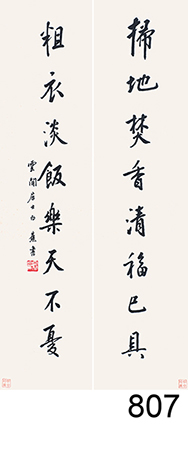 掃地焚香清福已具
粗衣淡飯樂天不憂
雲間居士白蕉書
807